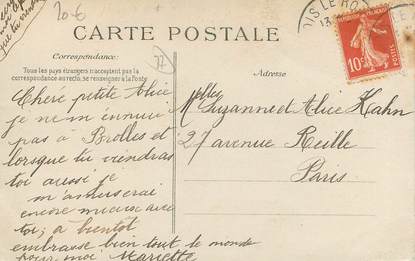 20-6
CARTE POSTALE
77
Correspondance:
Tous les pays étrangers n'acceptent pas la
correspondance au recto, se renseigner à la Poste
Adresse
OIS LE RO
13
10c
POSTES
Cheré petite Alice
je ne m'ennuie
pas à Brolles et
lorsque tu viendras
toi aussi je
m'amuserai
encore mieux avec
toi; à bientôt
embrasse bien tout le monde
pour moi Mariette
Melles Suzanne et Alice Kahn
27 avenue Reille
Paris